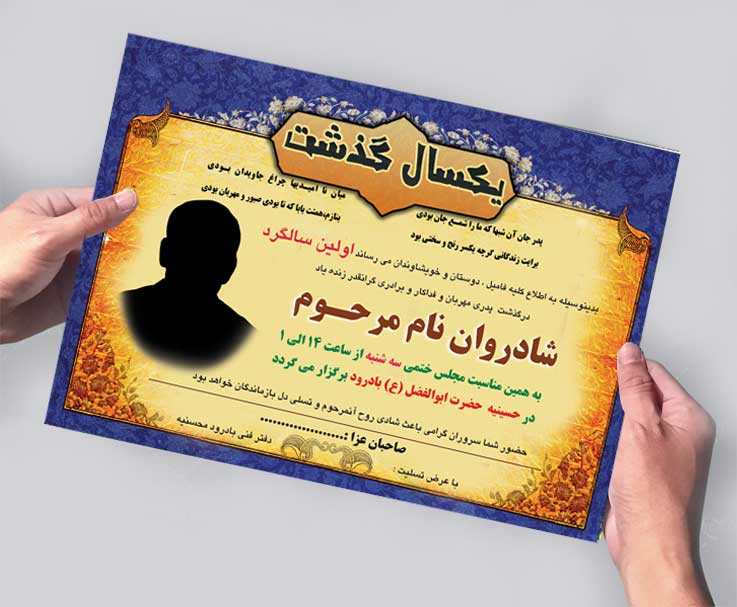 یکسال گذشت
پدر جان آن شبها که ما را شمع جان بودی
میان نا امیدیها چراغ جاویدان بودی
برایت زندگانی گرچه یکسر رنج و سختی بود
بنازم همتت بابا که تا بودی صبور و مهربان بودی
بدینوسیله به اطلاع کلیه فامیل ، دوستان و خویشاوندان می رساند اولین سالگرد
درگذشت پدری مهربان و فداکار و برادری گرانقدر زنده یاد
شادروان نام مرحوم
به همین مناسبت مجلس ختمی سه شنبه از ساعت ۱۴ الی ۱
در حسینیه حضرت ابوالفضل (ع) بادرود برگزار می گردد
حضور شما سروران گرامی باعث شادی روح آنمرحوم و تسلی دل بازماندگان خواهد بود
صاحبان عزا :....................
با عرض تسلیت :
دفتر فنی بادرود محسنیه